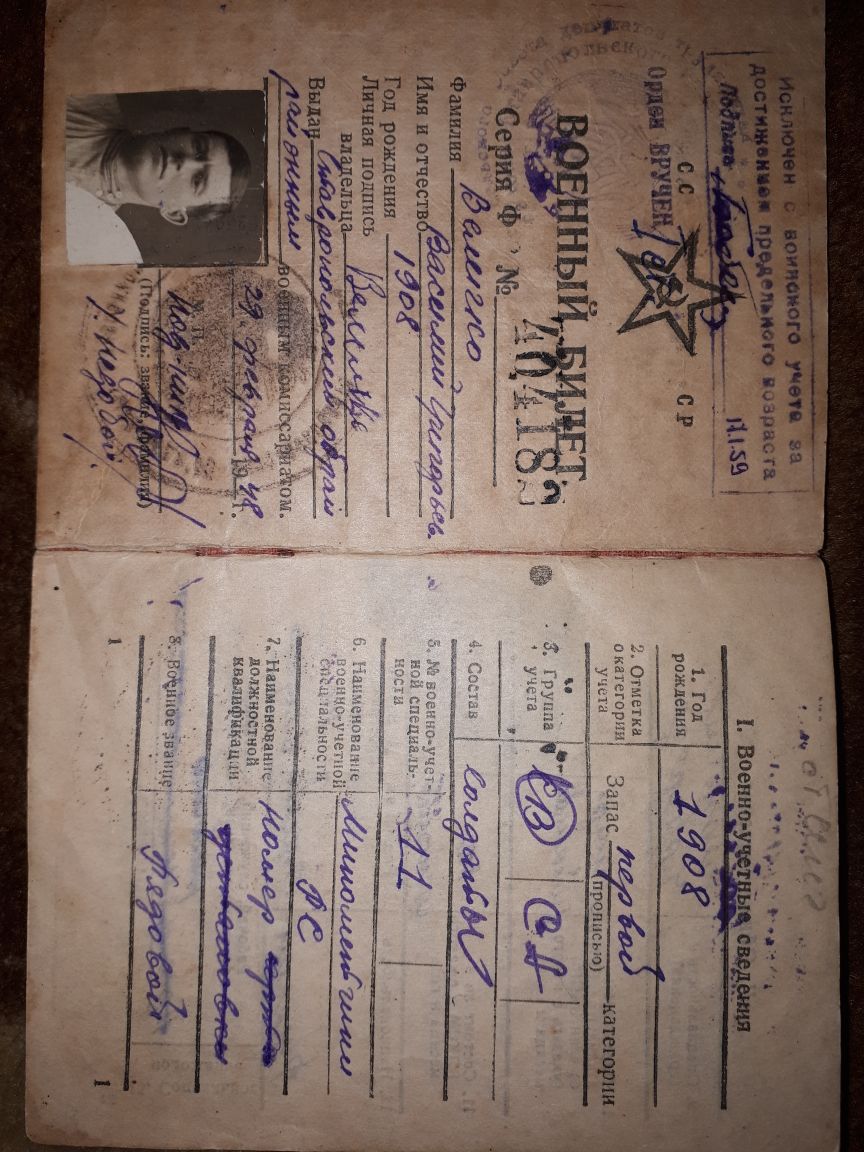 Исключен с воинского учета за
достижением предельного возраста
Подпись
17.1.59
СССР
Орден ВРУЧЕН
ВОЕННЫЙ БИЛЕТ
Серия Ф № 404183
Фамилия Величко
Имя и отчество Василий Григорьев.
Год рождения 1908
Личная подпись
владельца
Выдан Ставропольским
районным военным комиссариатом.
29. февраля 1948 г.
М. П.
(Подпись, звание, фамилия)
I. Военно-учетные сведения
1. Год
рождения
1908
2. Отметка
о категории
учета
Запас первой категории
(прописью)
3. Группа
учета
СА
4. Состав
Солдаты
5. № военно-учет-
ной специаль-
ности
11
6. Наименование
военно-учетной
специальности
Минометчики
РС
7. Наименование
должностной
квалификации
Номер
установки
8. Военное звание
Рядовой
1
1